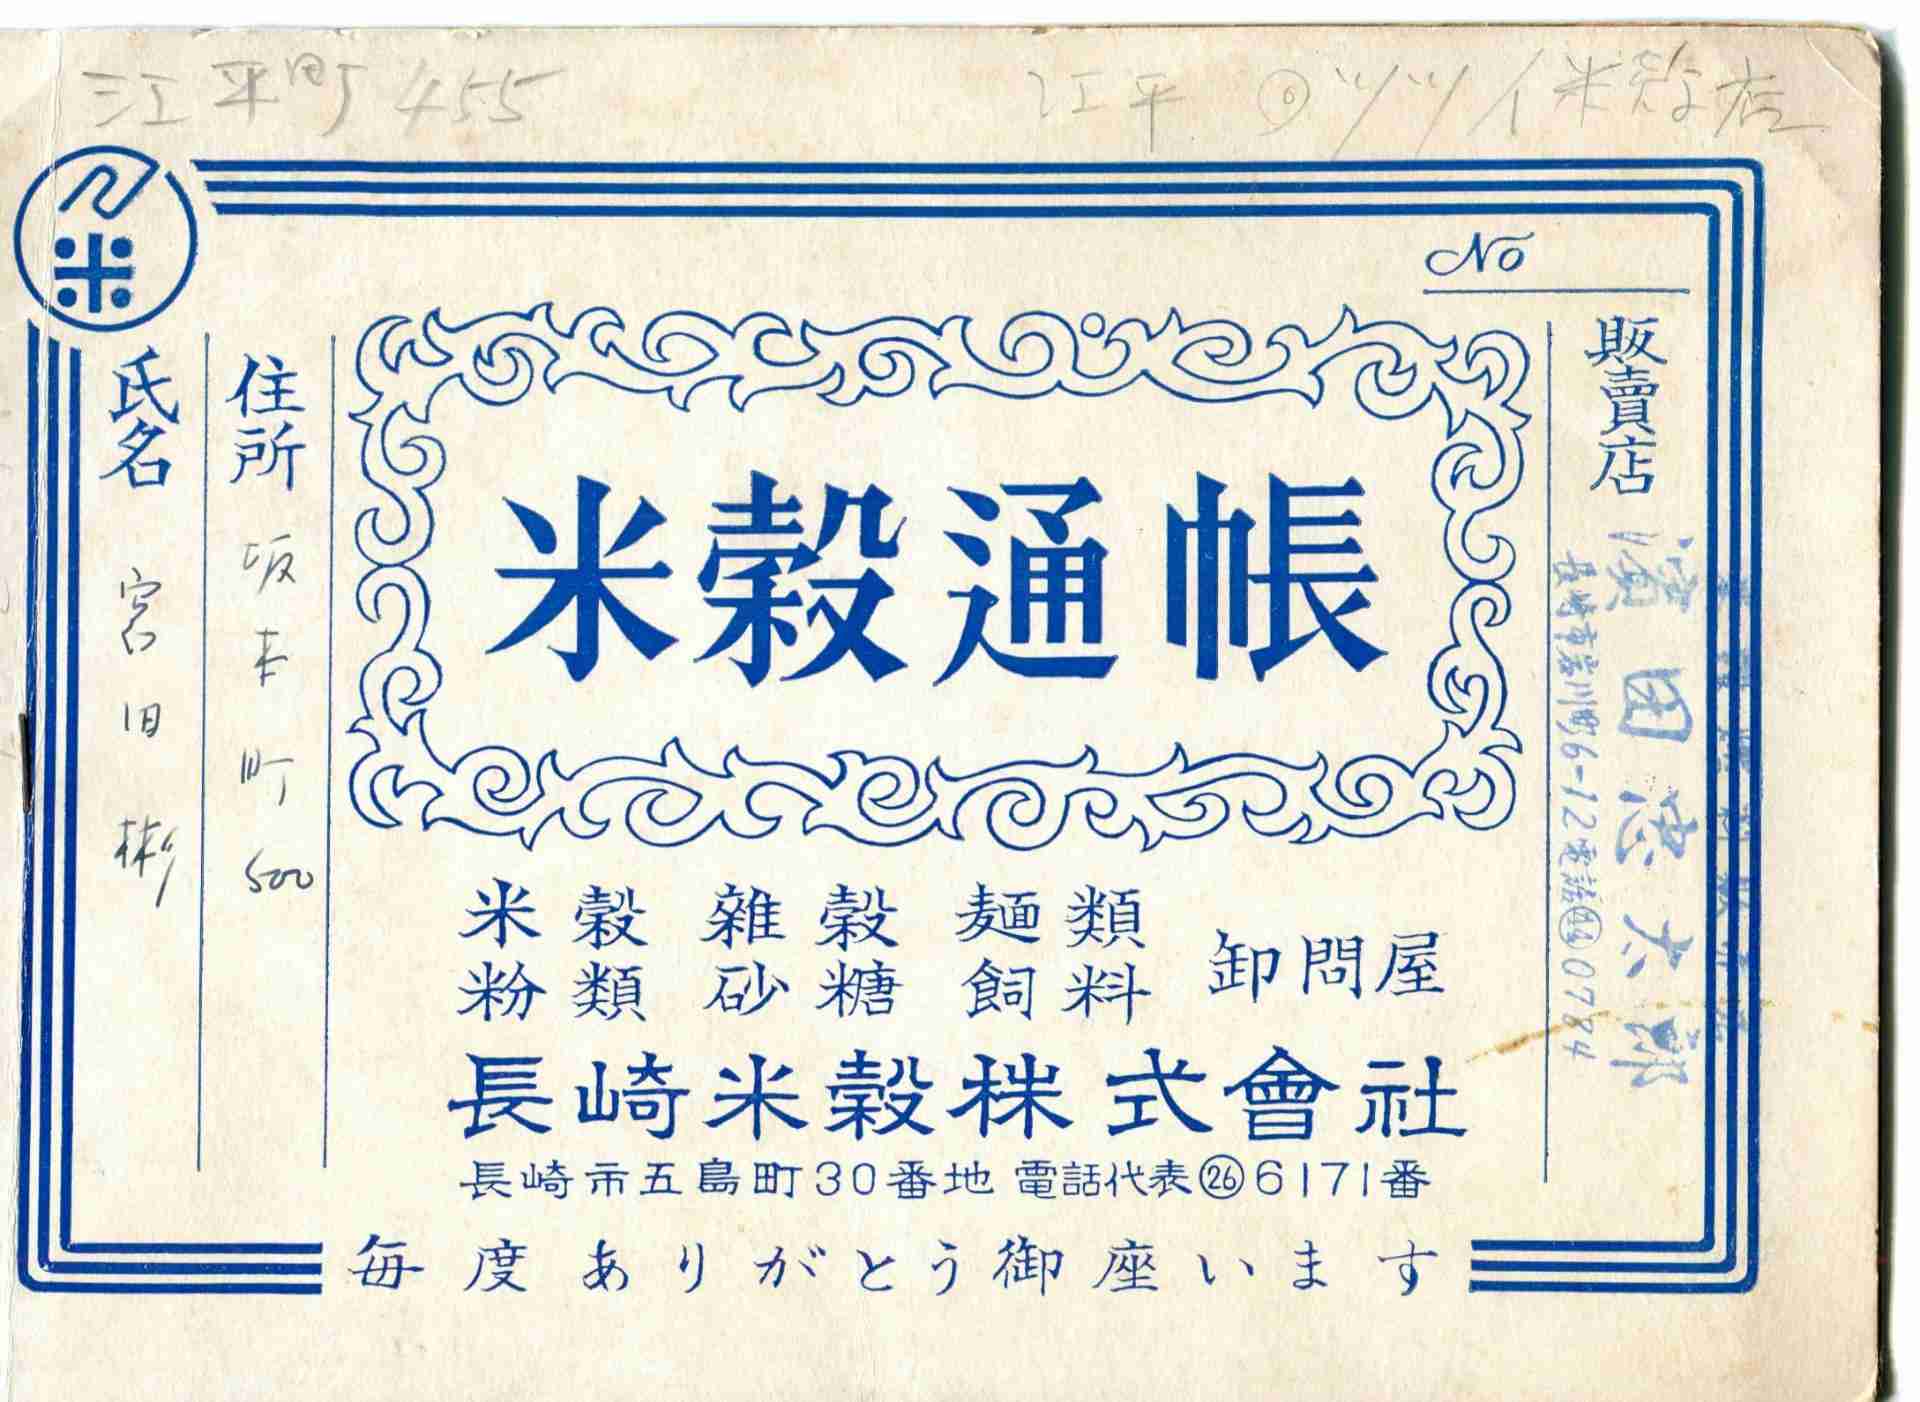 江平町455
江平 ⑥ツツイ米穀店
米
No
販賣店
濵田忠太郎
長崎市岩川町6-12電話㊹0784
米穀通帳
住所 坂本町500
氏名 宮田彬
米穀 雜穀 麺類
粉類 砂糖 飼料
卸問屋
長崎米穀株式會社
長崎市五島町30番地 電話代表㉖6171番
毎度ありがとう御座います